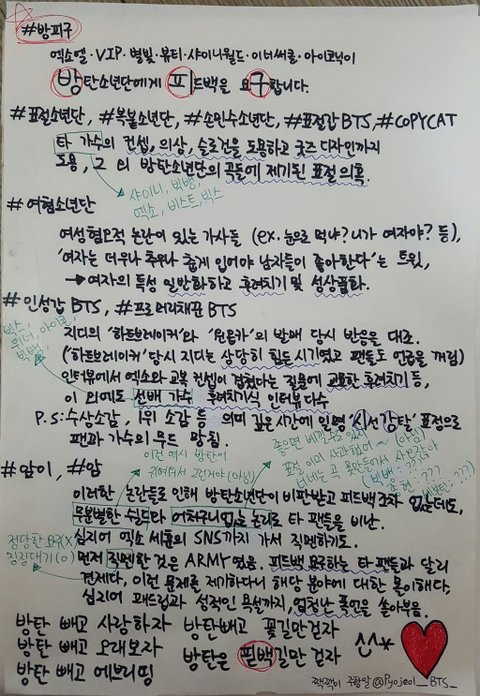 #방피구
엑소엘·VIP·별빛·뷰티·샤이니월드·이너써클·아이코닉이
방탄소년단에게 피드백을 요구합니다.
#표절소년단, #복붙소년단, #손민수소년단, #표절갑BTS, #COPYCAT
타 가수의 컨셉, 의상, 슬로건을 도용하고 굿즈 디자인까지
도용, 그 외 방탄소년단의 곡들에 제기된 표절 의혹.
샤이니, 빅뱅,
엑소, 비스트, 빅스
#여혐소년단
여성혐오적 논란이 있는 가사들 (ex. 눈으로 먹냐? 니가 여자야? 등),
'여자는 더우나 추우나 춥게 입어야 남자들이 좋아한다'는 트윗,
→여자의 특성 일반화하고 후려치기 및 성상품화.
#인성갑BTS, #프로머리채잡BTS
빅스,
위너, 아이콘,
빅뱅,
지디의 '하트브레이커'와 '원오카'의 발매 당시 반응을 대조.
(하트브레이커' 당시 지디는 상당히 힘든 시기였고 팬들도 언급을 꺼림)
인터뷰에서 엑소와 교복 컨셉이 겹쳤다는 질문에 교묘한 후려치기 등,
이 외에도 선배 가수 후려치기식 인터뷰 다수
P.S: 수상소감, 1위 소감 등 의미 깊은 시간에 일명 '시선강탈' 표정으로
팬과 가수의 무드 망침.
#앞이, #앞
이건 역시 방탄이
귀여워서 그런거야(아님)
이러한 논란들로 인해 방탄소년단이 비판받고 피드백조차 없는데도,
무분별한 쉴드와 어처구니없는 논리로 타 팬들을 비난.
심지어 엑소 세훈의 SNS까지 가서 직멘하기도.
정당한 요구(X)
징징대기(O)
먼저 직멘한 것은 ARMY였음. 피드백 요구하는 타 팬들과 달리
견제다, 이런 문제를 제기하다니 해당 분야에 대한 몰이해다,
심지어 패드립과 성적인 욕설까지, 엄청난 폭언을 쏟아부음.
방탄 빼고 사랑하자 방탄빼고 꽃길만걷자
방탄 빼고 오래보자 방탄은 핃백길만 걷자 ^^*
방탄 빼고 에브리띵
@Pyojeol_BTS_